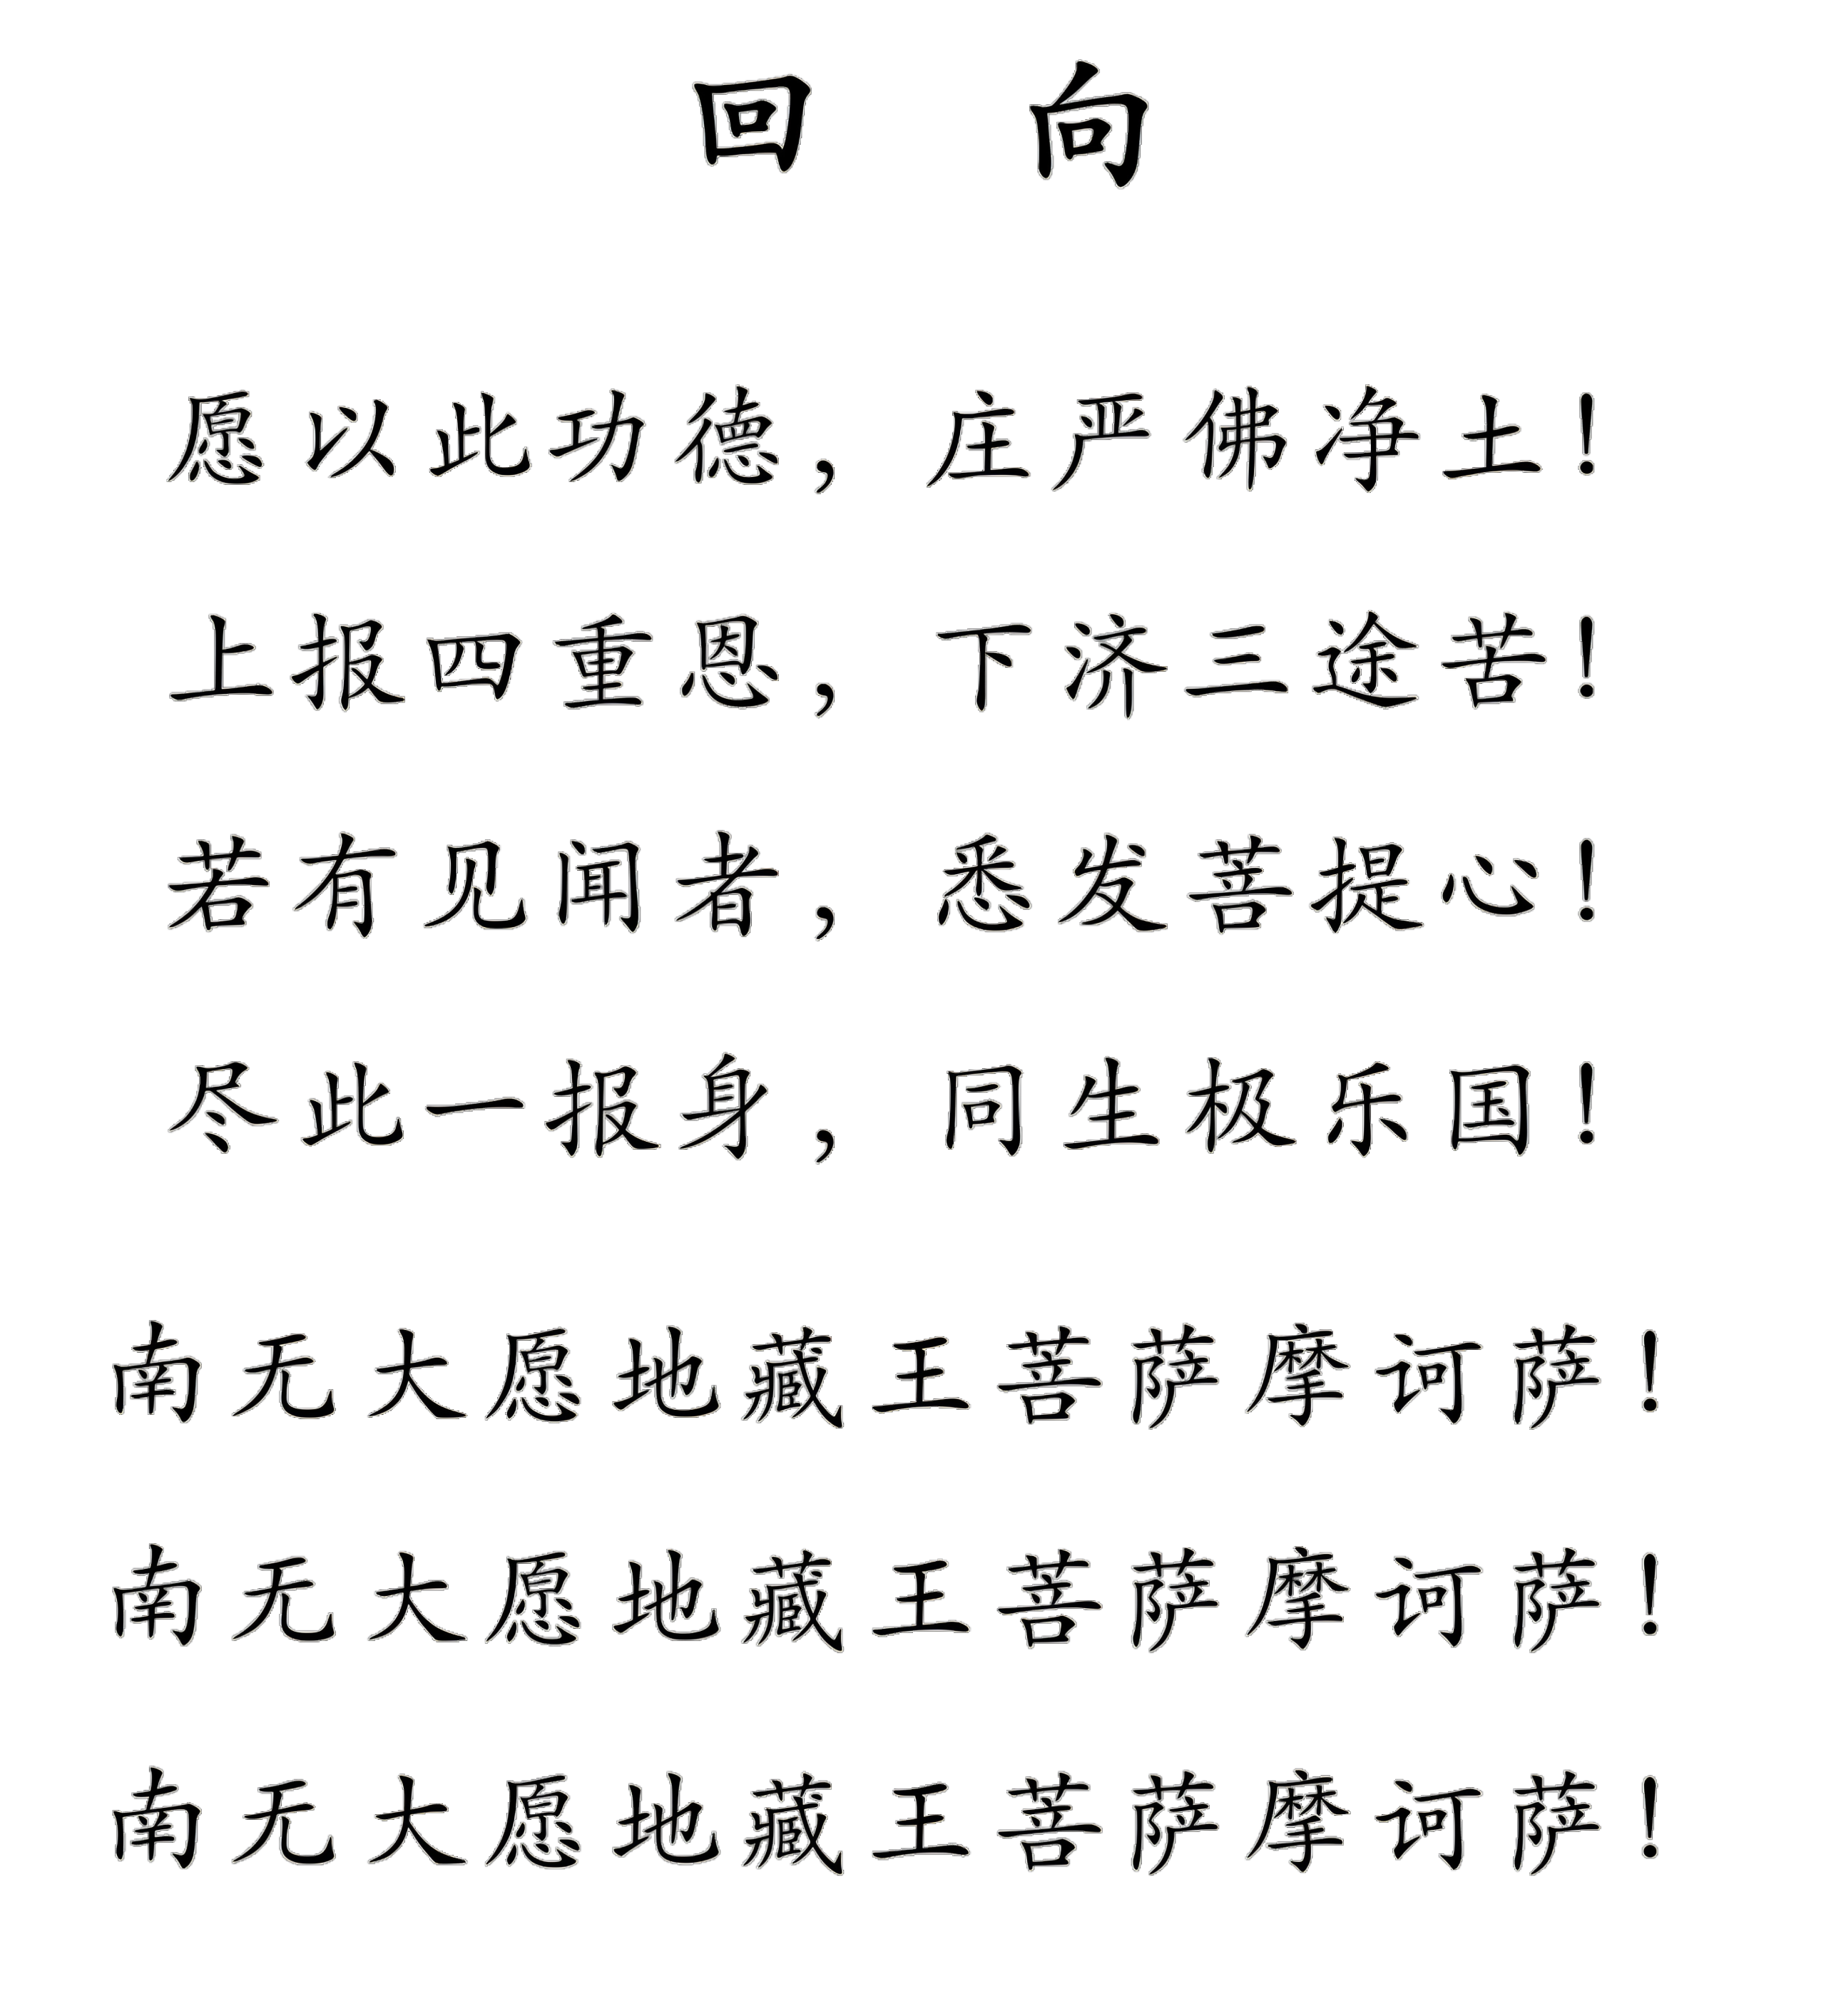 回 向
愿以此功德，庄严佛净土！
上报四重恩，下济三途苦！
若有见闻者，悉发菩提心！
尽此一报身，同生极乐国！
南无大愿地藏王菩萨摩诃萨！
南无大愿地藏王菩萨摩诃萨！
南无大愿地藏王菩萨摩诃萨！